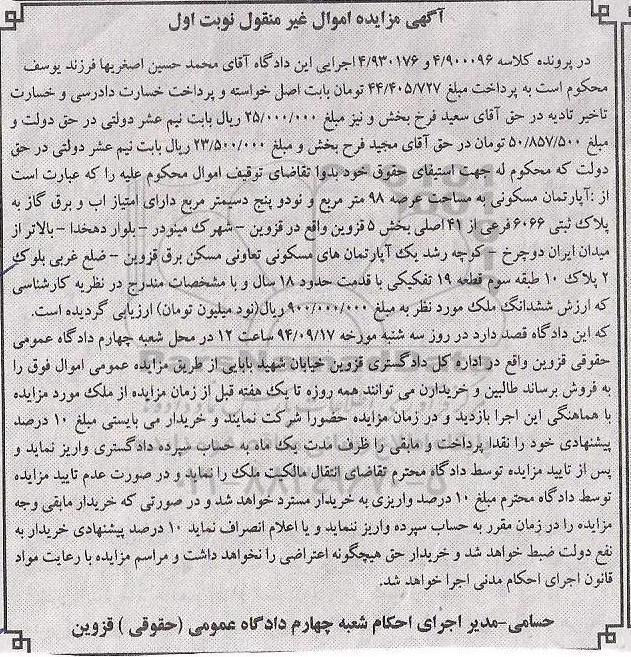 آگهی مزایده اموال غیر منقول نوبت اول
در پرونده کلاسه ۴/۹۰۰۰۹۶ و ۴/۹۳۰۱۷۶ اجرایی این دادگاه آقای محمد حسین اصغریها فرزند یوسف
محکوم است به پرداخت مبلغ ۴۴/۴۰۵/۷۲۷ تومان بابت اصل خواسته و پرداخت خسارت دادرسی و خسارت
تاخیر تادیه در حق آقای سعید فرخ بخش و نیز مبلغ ۲۵/۰۰۰/۰۰۰ ریال بابت نیم عشر دولتی در حق دولت و
مبلغ ۵۰/۸۵۷/۵۰۰ تومان در حق آقای مجید فرح بخش و مبلغ ۲۳/۵۰۰/۰۰۰ ریال بابت نیم عشر دولتی در حق
دولت که محکوم له جهت استیفای حقوق خود بدوا تقاضای توقیف اموال محکوم علیه را که عبارت است
از :آپارتمان مسکونی به مساحت عرصه ۹۸ متر مربع و نودو پنج دسیمتر مربع دارای امتیاز اب و برق گاز به
پلاک ثبتی ۶۰۶۶ فرعی از ۴۱ اصلی بخش ۵ قزوین واقع در قزوین - شهرک مینودر - بلوار دهخدا - بالاتر از
میدان ایران دوچرخ - کوچه رشد یک آپارتمان های مسکونی تعاونی مسکن برق قزوین - ضلع غربی بلوک
۲ پلاک ۱۰ طبقه سوم قطعه ۱۹ تفکیکی با قدمت حدود ۱۸ سال و با مشخصات مندرج در نظریه کارشناسی
که ارزش ششدانگ ملک مورد نظر به مبلغ ۹۰۰/۰۰۰/۰۰۰ ریال(نود میلیون تومان) ارزیابی گردیده است.
که این دادگاه قصد دارد در روز سه شنبه مورخه ۹۴/۰۹/۱۷ ساعت ۱۲ در محل شعبه چهارم دادگاه عمومی
حقوقی قزوین واقع در اداره کل دادگستری قزوین خیابان شهید بابایی از طریق مزایده عمومی اموال فوق را
به فروش برساند طالبین و خریدارن می توانند همه روزه تا یک هفته قبل از زمان مزایده از ملک مورد مزایده
با هماهنگی این اجرا بازدید و در زمان مزایده حضورا شرکت نمایند و خریدار می بایستی مبلغ ۱۰ درصد
پیشنهادی خود را نقدا پرداخت و مابقی را ظرف مدت یک ماه به حساب سپرده دادگستری واریز نماید و
پس از تایید مزایده توسط دادگاه محترم تقاضای انتقال مالکیت ملک را نماید و در صورت عدم تایید مزایده
توسط دادگاه محترم مبلغ ۱۰ درصد واریزی به خریدار مسترد خواهد شد و در صورتی که خریدار مابقی وجه
مزایده را در زمان مقرر به حساب سپرده واریز ننماید و یا اعلام انصراف نماید ۱۰ درصد پیشنهادی خریدار به
نفع دولت ضبط خواهد شد و خریدار حق هیچگونه اعتراضی را نخواهد داشت و مراسم مزایده با رعایت مواد
قانون اجرای احکام مدنی اجرا خواهد شد.
حسامی-مدیر اجرای احکام شعبه چهارم دادگاه عمومی (حقوقی ) قزوین